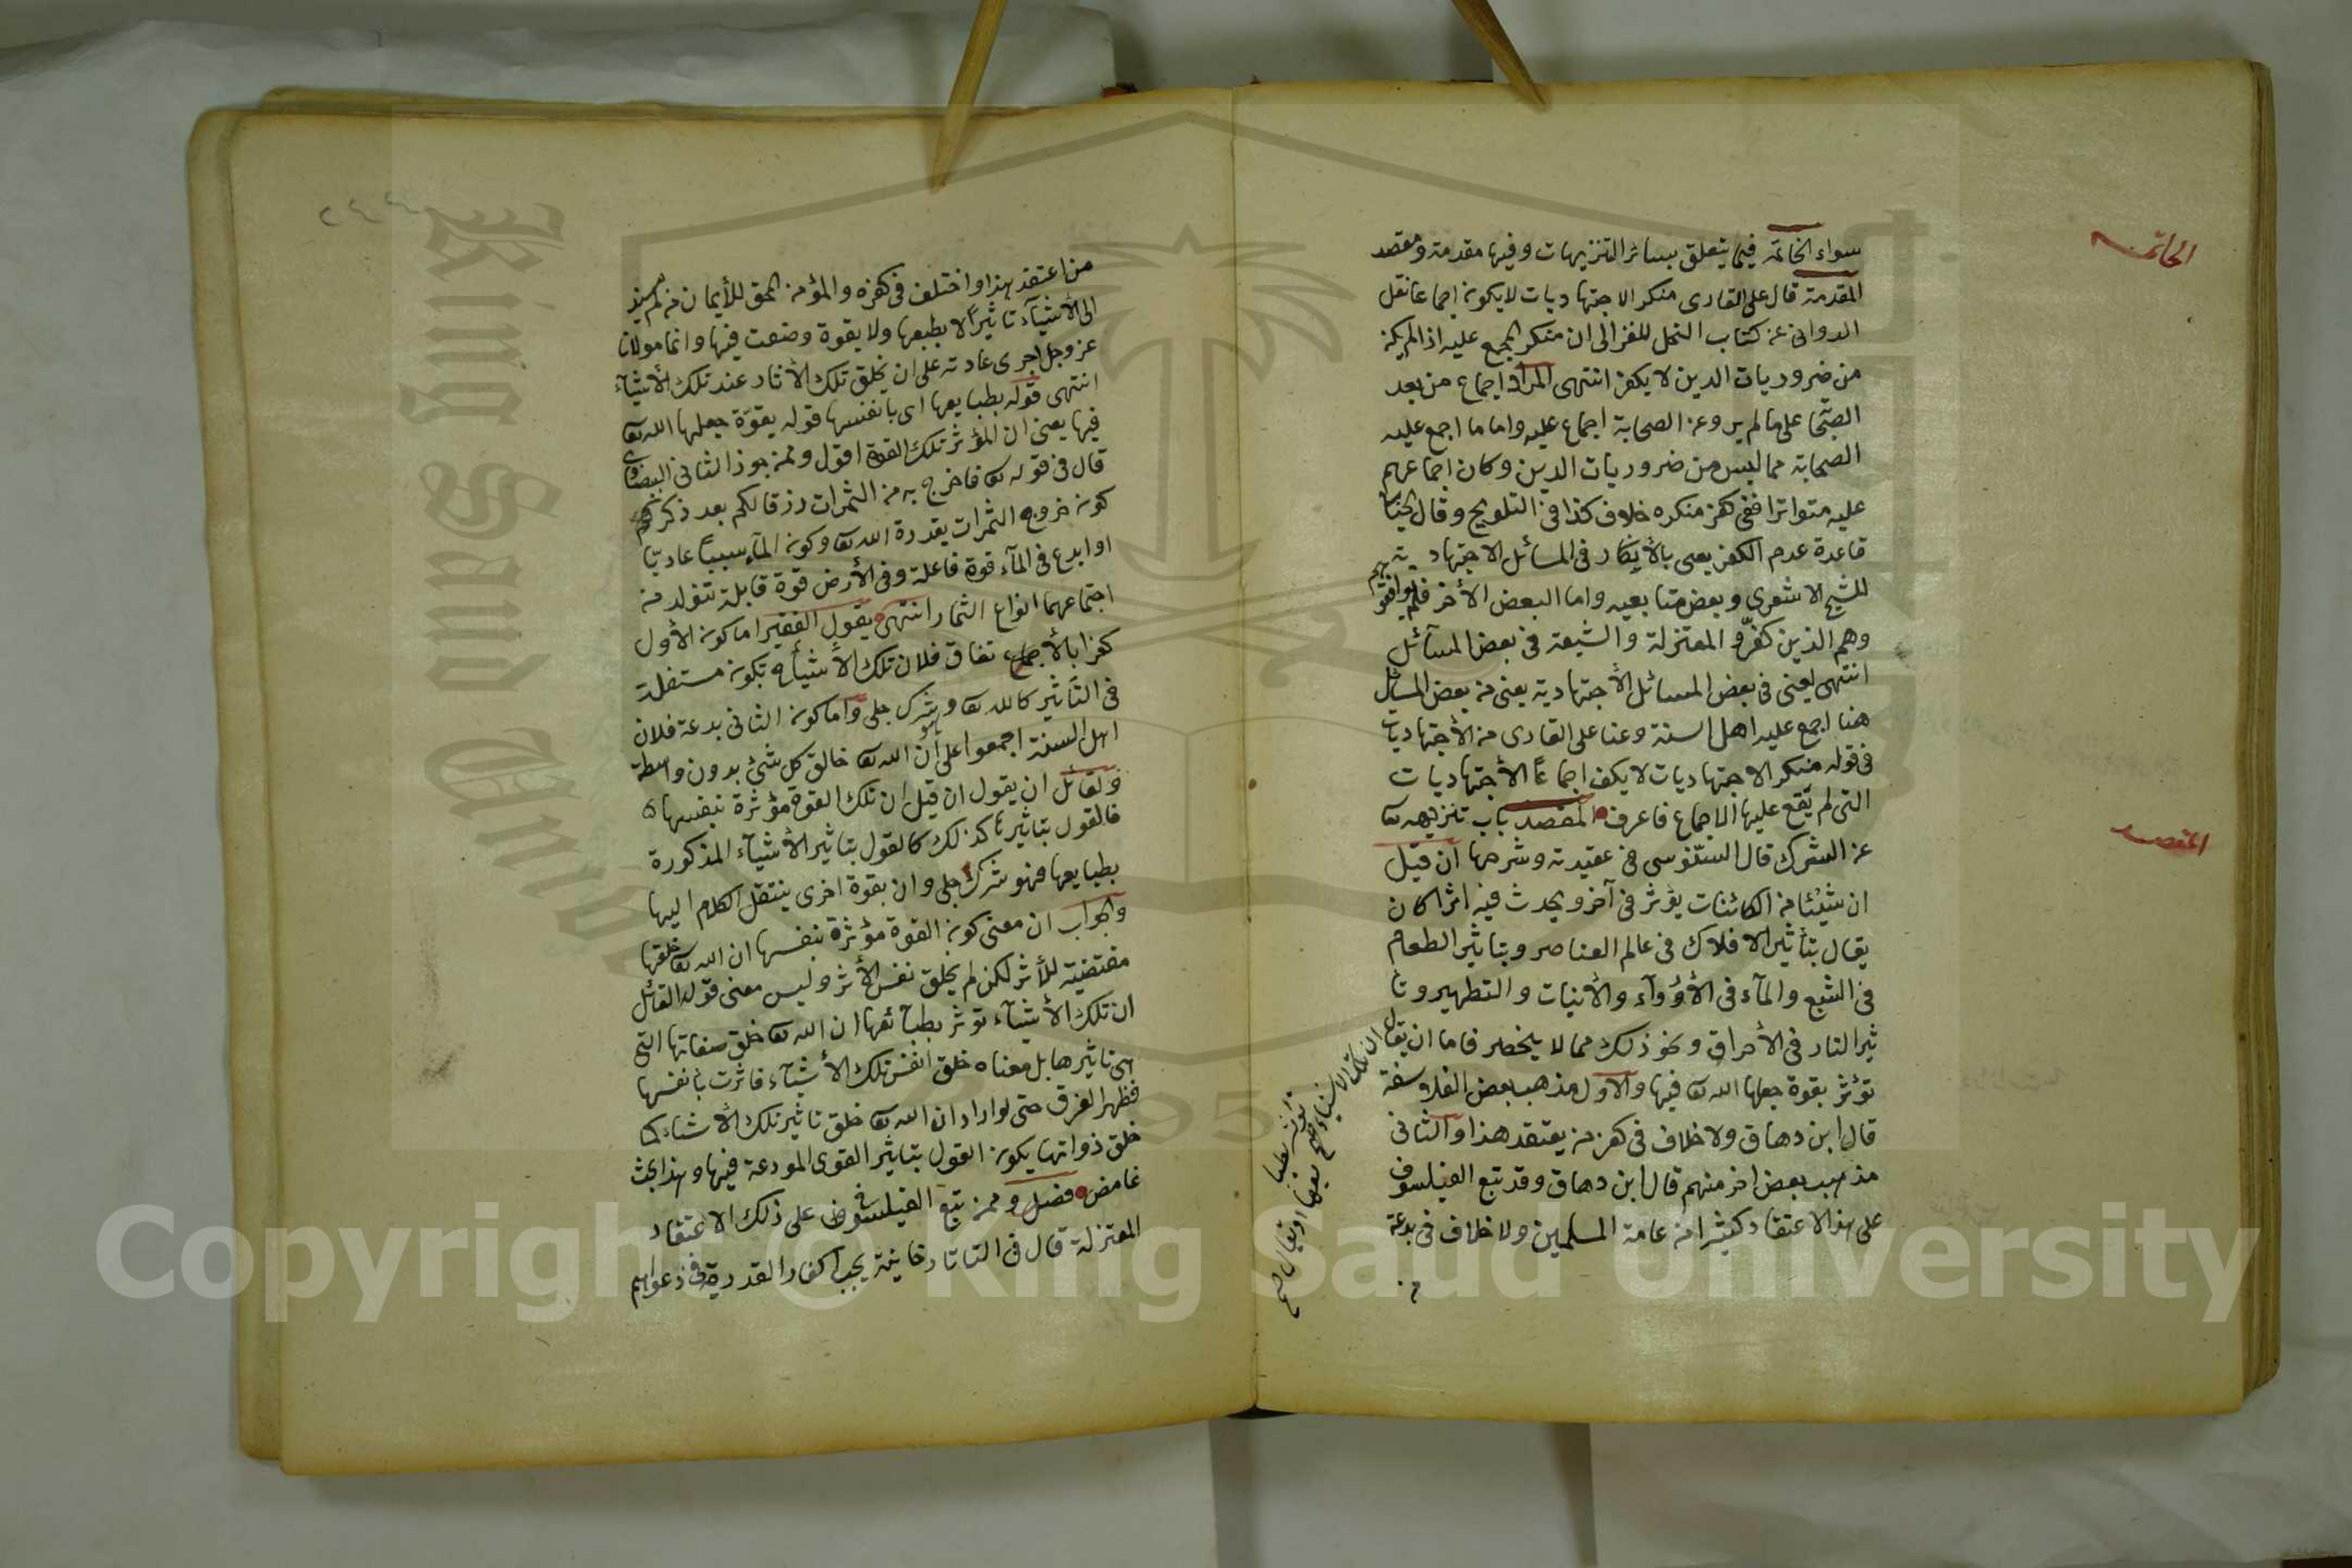 الخاتمة
سواء الخاتمة فيما يتعلق بسائر التنزيهات وفيها مقدمة ومقصد
المقدمة قال على القارى منكر الاجتهاديات لا يكون اجماعا نقل
الدوانى عن كتاب النحل للغزالى ان منكر المجمع عليه اذا لم يكن
من ضروريات الدين لا يكفر انتهى المراد اجماع من بعد
الصحابة على ما لم يرو عن الصحابة اجماع عليه واما ما اجمع عليه
الصحابة مما ليس من ضروريات الدين وكان اجماعهم
عليه متواترا ففى كفر منكره خلاف كذا فى التلويح وقال
قاعدة عدم الكفر يعنى بالأنكار فى المسائل الاجتهادية
للشيخ الاشعري وبعض متابعيه واما البعض الأخر فلم يوافقوهم
وهم الذين كفرّو المعتزلة والشيعة فى بعض المسآئل
انتهى يعنى فى بعض المسائل الأجتهادية يعنى من بعض المسائل
هنا اجمع عليه اهل السنة وعنا على القارى من الأجتهاديات
فى قوله منكر الاجتهاديات لا يكفر اجماعًا الأجتهاديات
التى لم يقع عليها الاجماع فاعرف المقصد باب تنزيهه تع
المقصد
عن الشرك قال السنّوسى فى عقيدته وشرحها ان قيل
ان شيئا من الكائنات يؤثر فى آخر ويحدث فيه اثرا كان
يقال بتأثير الافلاك فى عالم العناصر وبتاثير الطعام
فى الشبع والمآء فى الأروآء والأنبات والتطهير وتا
ثير النار فى الأحراق ونحو ذلك مما لا ينحصر فاما ان يقال
ان تلك الاشياء
تؤثر بطبا
يعها او يقال صح
تؤثر بقوة جعلها الله تع فيها والاول مذهب بعض الفلاسفة
قال ابن دهاق ولا خلاف فى كفر من يعتقد هذا والثانى
مذهب بعض اخر منهم قال ابن دهاق وقد تبع الفيلسوف
على هذا الاعتقاد كثيرا من عامة المسلمين ولا خلاف فى بدعة
من
من اعتقد هذا واختلف فى كفره والمؤمن المحق للأيمان من لم يسند
الى الأشيآء تاثيرًا لا بطبعها ولا بقوة وضعت فيها وانما مولانا
عز وجل اجرى عادته على ان يخلق تلك الأثار عند تلك الأشيآء
انتهى قوله بطبايعها اى بانفسها قوله بقوّة جعلها الله تع
فيها يعنى ان المؤثر تلك القوة اقول وممن جوز الثانى البيضاوى
قال فى قوله تع فاخرج به من الثمرات رزقا لكم بعد ذكر
كون خروج الثمرات بقدرة الله تع وكون المآء سببًا عاديّا
او ابدع فى المآء قوة فاعلة وفى الأرض قوة قابلة تتولد من
اجتماعهما انواع الثمار انتهى يقول الفقير اما كون الأول
كفرا بالأجماع تفاق فلان تلك الأشيآء تكون مستقلة
فى التأثير كالله تع وهو شرك جلى واما كون الثانى بدعة فلان
اهل السنة اجمعوا على أن الله تع خالق كل شئ بدون واسطة
ولقائل ان يقول ان قيل ان تلك القوة مؤثرة بنفسها
فالقول بتاثيرها كذلك كالقول بتاثير الأشيآء المذكورة
بطبايعها فهو شرك جلى وان بقوة اخرى ينتقل الكلام اليها
والجواب ان معنى كون القوة مؤثرة بنفسها ان الله تع خلقها
مقتضية للأثر لكن لم يخلق نفس الأثر وليس معنى قول القائل
ان تلك الأشيآء توثر بطبآئعها ان الله تع خلق صفاتها التى
هى تاثيرها بل معناه خلق انفس تلك الأشيآء فاثرت بأنفسها
فظهر الفرق حتى لو اراد ان الله تع خلق تاثير تلك الأشياء كما
خلق ذواتها يكون القول بتاثير القوى المودعة فيها وهذا بحث
غامض فصل وممن تبع الفيلسوف على ذلك الاعتقاد
المعتزلة قال فى التاتارخانية يجب اكفار القدرية فى دعواهم
Copyright © King Saud University
King Saud University